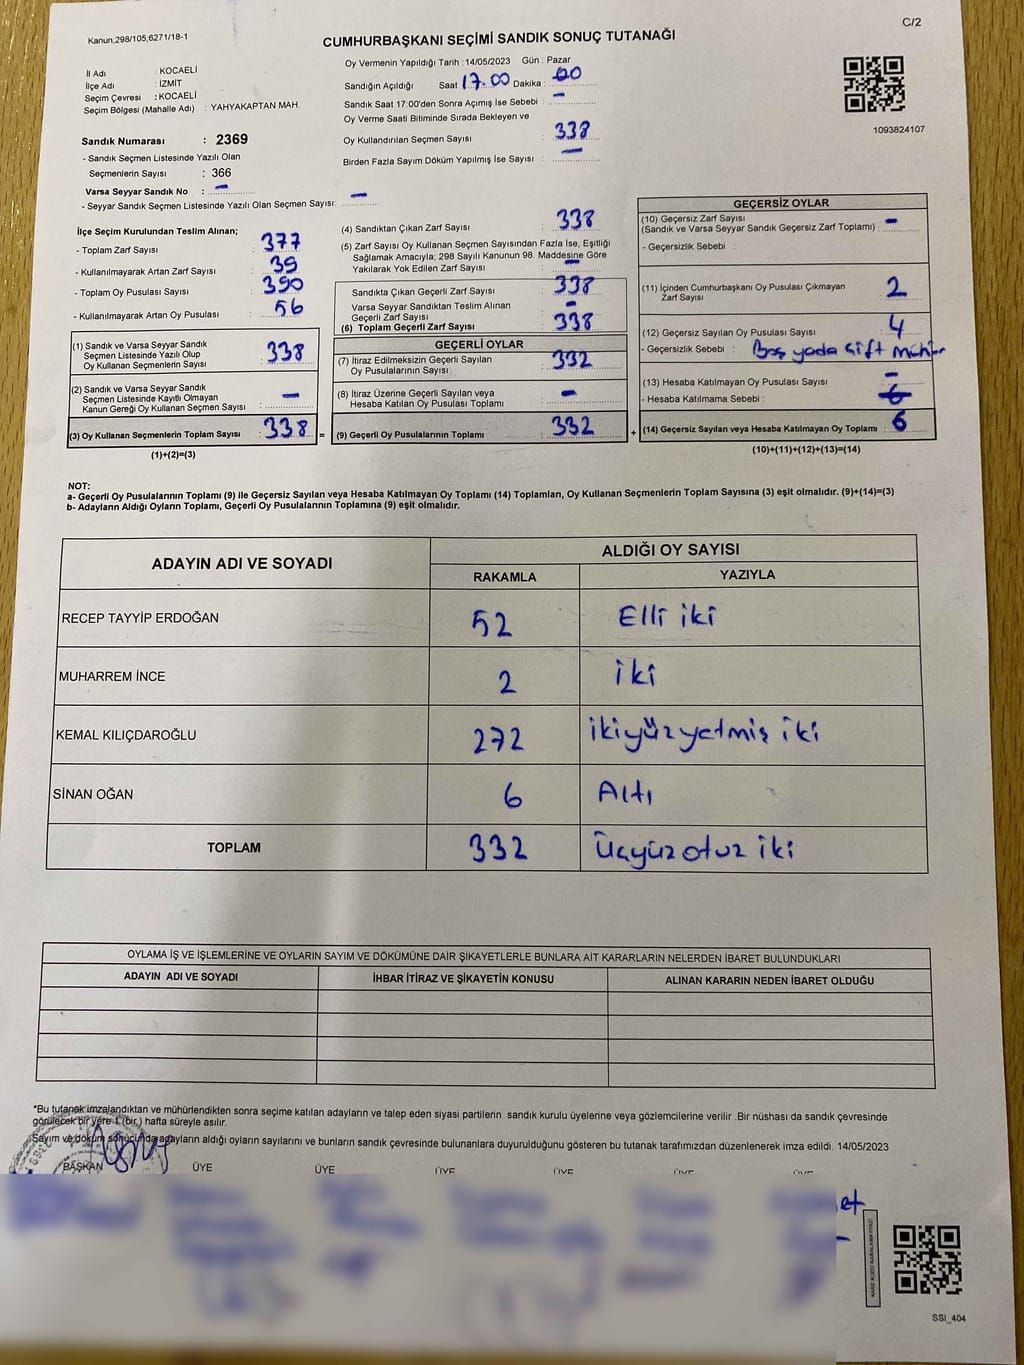 C/2
Kanun,298/105,6271/18-1
CUMHURBAŞKANI SEÇİMİ SANDIK SONUÇ TUTANAĞI
İl Adı : KOCAELİ
İlçe Adı : İZMİT
Seçim Çevresi : KOCAELİ
Seçim Bölgesi (Mahalle Adı) : YAHYAKAPTAN MAH.
Sandık Numarası : 2369
- Sandık Seçmen Listesinde Yazılı Olan
Seçmenlerin Sayısı : 366
Varsa Seyyar Sandık No : -
- Seyyar Sandık Seçmen Listesinde Yazılı Olan Seçmen Sayısı: -
Oy Vermenin Yapıldığı Tarih : 14/05/2023 Gün : Pazar
Sandığın Açıldığı Saat 17.00 Dakika : 00
Sandık Saat 17:00'den Sonra Açımış İse Sebebi : -
Oy Verme Saati Bitiminde Sırada Bekleyen ve
Oy Kullandırılan Seçmen Sayısı : 338
Birden Fazla Sayım Döküm Yapılmış İse Sayısı : -
1093824107
İlçe Seçim Kurulundan Teslim Alınan;
- Toplam Zarf Sayısı : 377
- Kullanılmayarak Artan Zarf Sayısı : 39
- Toplam Oy Pusulası Sayısı : 390
- Kullanılmayarak Artan Oy Pusulası : 56
(1) Sandık ve Varsa Seyyar Sandık
Seçmen Listesinde Yazılı Olup
Oy Kullanan Seçmenlerin Sayısı : 338
(2) Sandık ve Varsa Seyyar Sandık
Seçmen Listesinde Kayıtlı Olmayan
Kanun Gereği Oy Kullanan Seçmen Sayısı : -
(3) Oy Kullanan Seçmenlerin Toplam Sayısı : 338 =
(1)+(2)=(3)
(4) Sandıktan Çıkan Zarf Sayısı : 338
(5) Zarf Sayısı Oy Kullanan Seçmen Sayısından Fazla İse, Eşitliği
Sağlamak Amacıyla; 298 Sayılı Kanunun 98. Maddesine Göre
Yakılarak Yok Edilen Zarf Sayısı : -
Sandıkta Çıkan Geçerli Zarf Sayısı : 338
Varsa Seyyar Sandıktan Teslim Alınan
Geçerli Zarf Sayısı : -
(6) Toplam Geçerli Zarf Sayısı : 338
GEÇERLİ OYLAR
(7) İtiraz Edilmeksizin Geçerli Sayılan
Oy Pusulalarının Sayısı : 332
(8) İtiraz Üzerine Geçerli Sayılan veya
Hesaba Katılan Oy Pusulası Toplamı : -
(9) Geçerli Oy Pusulalarının Toplamı : 332 +
GEÇERSİZ OYLAR
(10) Geçersiz Zarf Sayısı
(Sandık ve Varsa Seyyar Sandık Geçersiz Zarf Toplamı) : -
- Geçersizlik Sebebi :
(11) İçinden Cumhurbaşkanı Oy Pusulası Çıkmayan
Zarf Sayısı : 2
(12) Geçersiz Sayılan Oy Pusulası Sayısı : 4
- Geçersizlik Sebebi : Boş yada Çift mühür
(13) Hesaba Katılmayan Oy Pusulası Sayısı : -
- Hesaba Katılmama Sebebi : 6
(14) Geçersiz Sayılan veya Hesaba Katılmayan Oy Toplamı : 6
(10)+(11)+(12)+(13)=(14)
NOT:
a- Geçerli Oy Pusulalarının Toplamı (9) ile Geçersiz Sayılan veya Hesaba Katılmayan Oy Toplamı (14) Toplamları, Oy Kullanan Seçmenlerin Toplam Sayısına (3) eşit olmalıdır. (9)+(14)=(3)
b- Adayların Aldığı Oyların Toplamı, Geçerli Oy Pusulalarının Toplamına (9) eşit olmalıdır.
ADAYIN ADI VE SOYADI ALDIĞI OY SAYISI
RAKAMLA YAZIYLA
RECEP TAYYİP ERDOĞAN 52 Elli iki
MUHARREM İNCE 2 iki
KEMAL KILIÇDAROĞLU 272 ikiyüzyetmiş iki
SİNAN OĞAN 6 Altı
TOPLAM 332 Üçyüzotuz iki
OYLAMA İŞ VE İŞLEMLERİNE VE OYLARIN SAYIM VE DÖKÜMÜNE DAİR ŞİKAYETLERLE BUNLARA AİT KARARLARIN NELERDEN İBARET BULUNDUKLARI
ADAYIN ADI VE SOYADI İHBAR İTİRAZ VE ŞİKAYETİN KONUSU ALINAN KARARIN NEDEN İBARET OLDUĞU
*Bu tutanak imzalandıktan ve mühürlendikten sonra seçime katılan adayların ve talep eden siyasi partilerin sandık kurulu üyelerine veya gözlemcilerine verilir .Bir nüshası da sandık çevresinde
görülecek bir yere 1 (bir) hafta süreyle asılır.
Sayım ve döküm sonucunda adayların aldığı oyların sayılarını ve bunların sandık çevresinde bulunanlara duyurulduğunu gösteren bu tutanak tarafımızdan düzenlenerek imza edildi. 14/05/2023
BAŞKAN ÜYE ÜYE ÜYE ÜYE ÜYE ÜYE
et
SSI_404